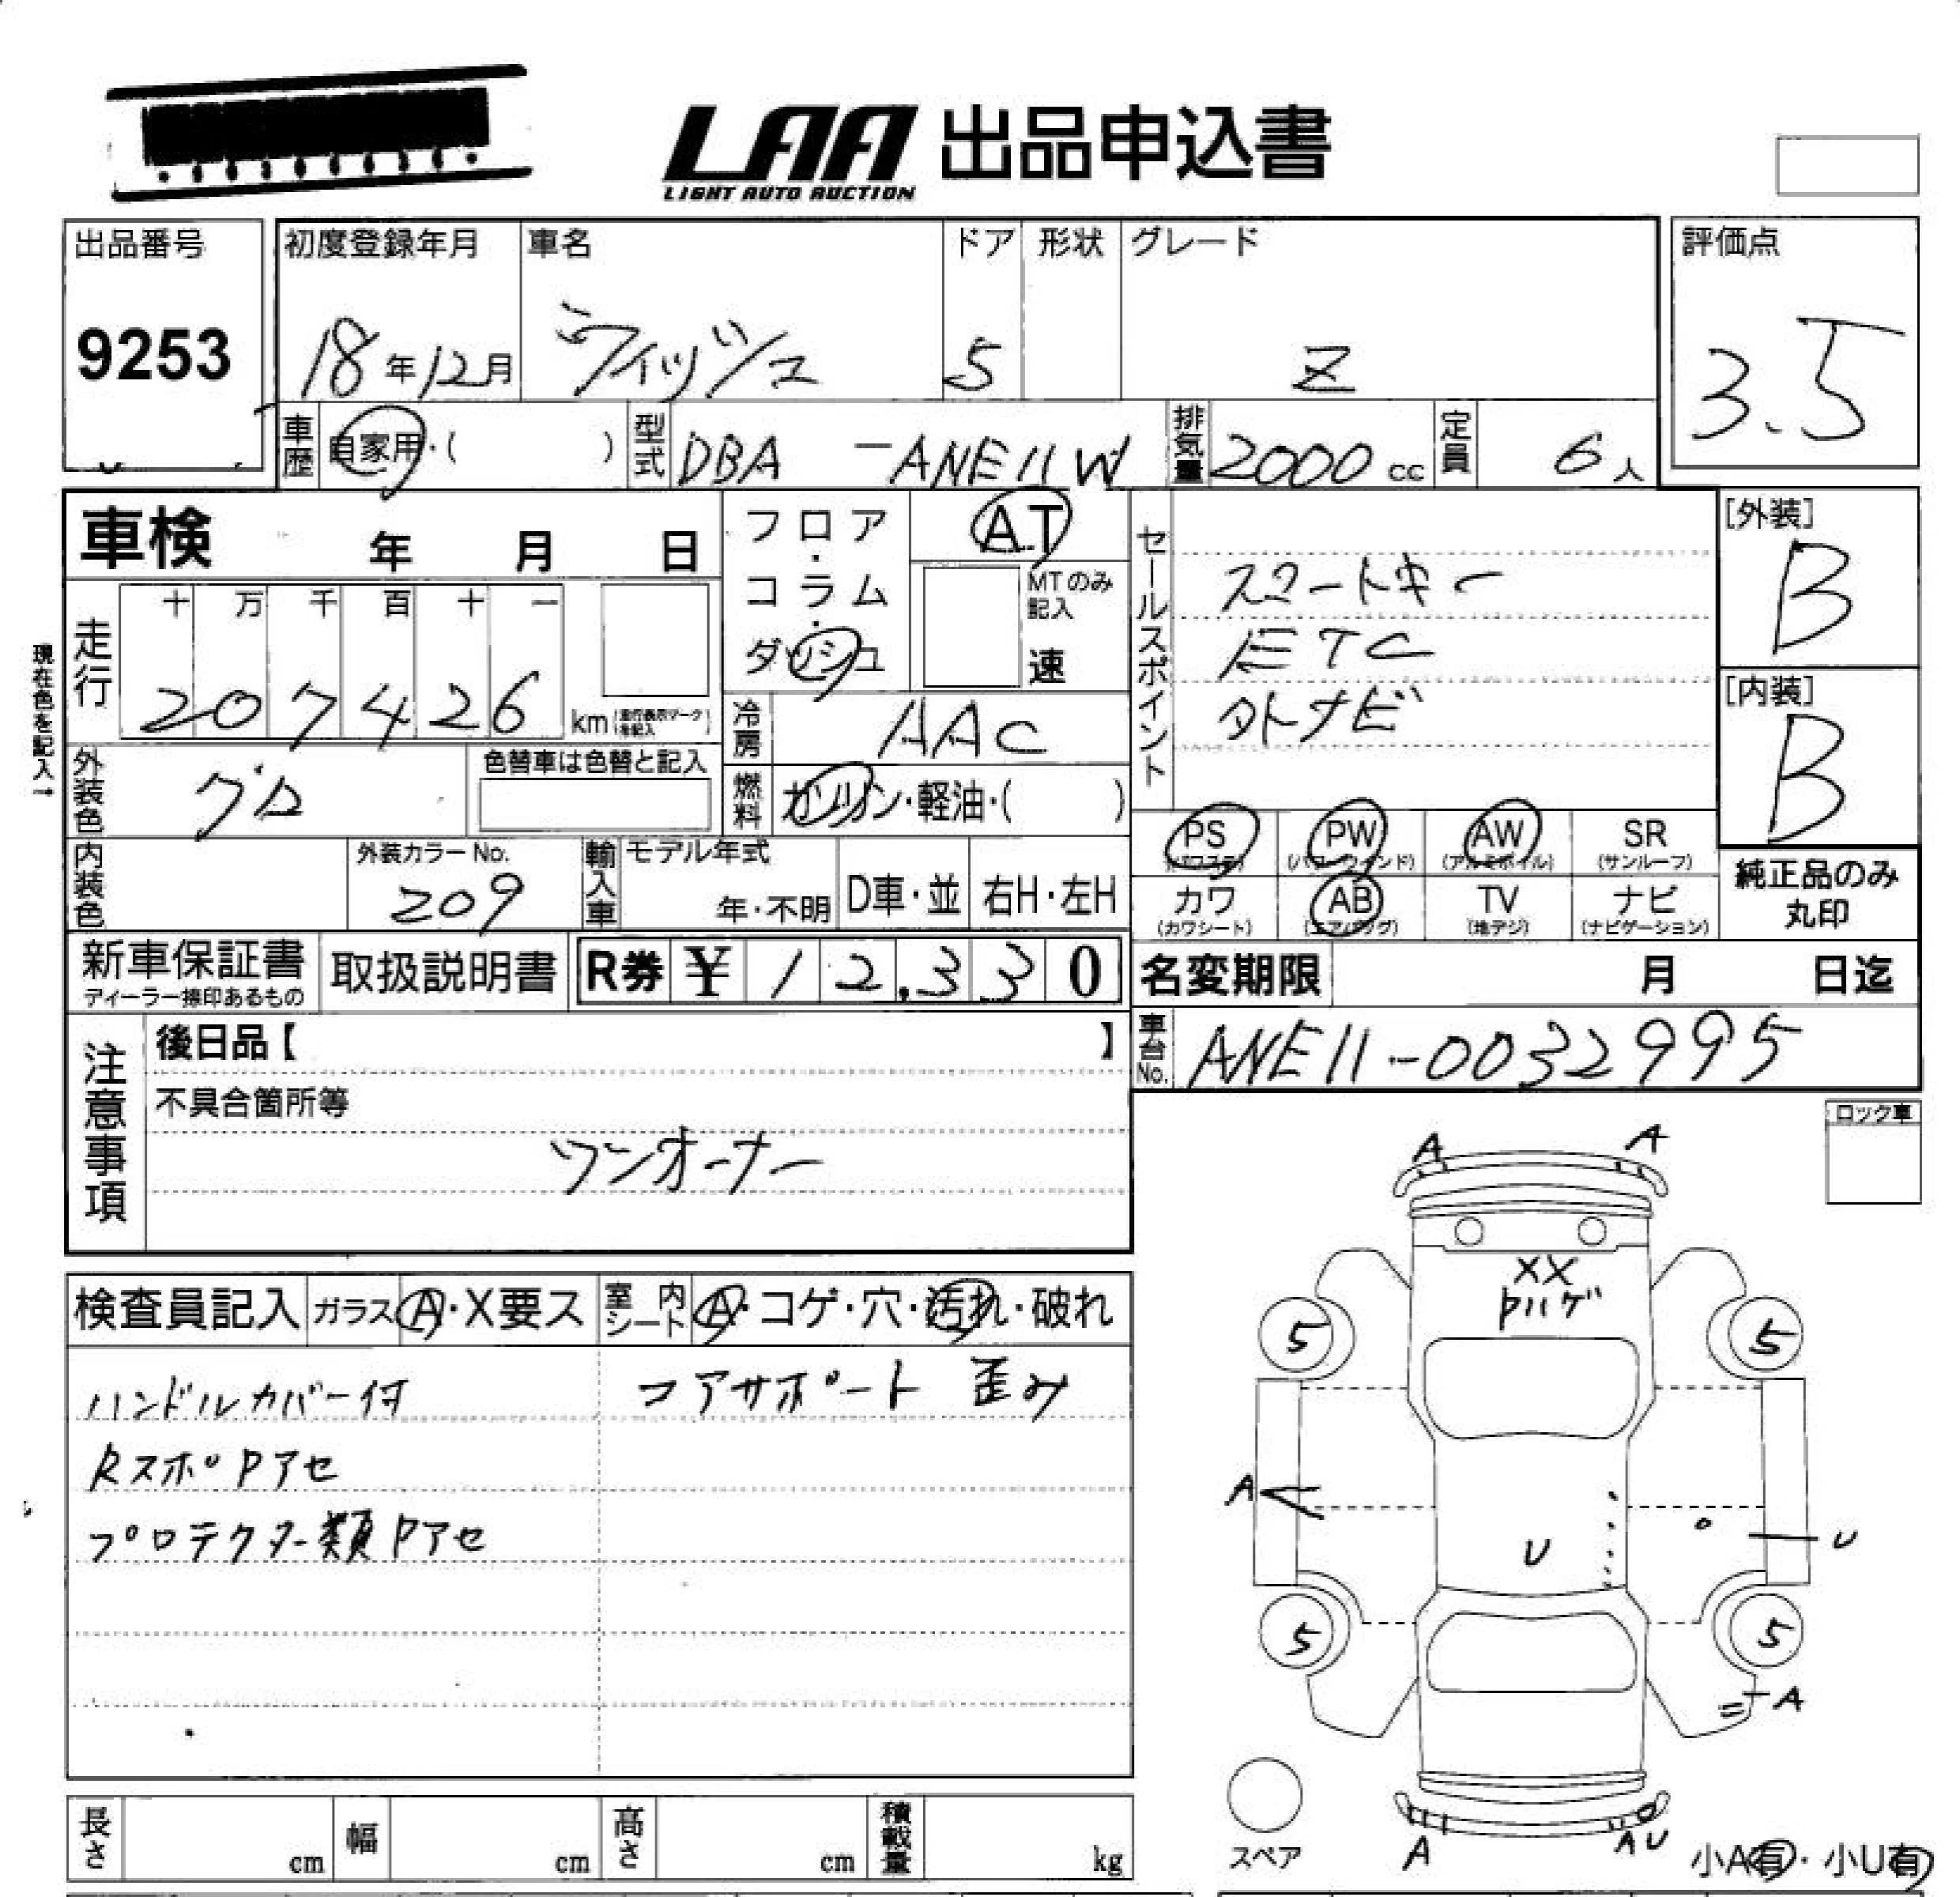 LAA 出品申込書
LIGHT AUTO AUCTION
出品番号 初度登録年月 車名 ドア 形状 グレード 評価点
9253 18年12月 ウィッシュ 5 Z 3.5
車歴 自家用・( ) 型式 DBA -ANE11W 排気量 2000cc 定員 6人
車検 年 月 日
フロア・コラム・ダッシュ
A.T
MTのみ記入
速
セールスポイント
スマートキー
ETC
外ナビ
[外装]
B
[内装]
B
現在色を記入→
走行
十 万 千 百 十 一
207426 km
冷房 AAC
外装色 クロ
色替車は色替と記入
燃料 ガソリン・軽油・( )
PS PW AW SR
(パワステ) (パワーウインド) (アルミホイル) (サンルーフ)
カワ AB TV ナビ
(カワシート) (エアバッグ) (地デジ) (ナビゲーション)
純正品のみ
丸印
内装色
外装カラーNo.
209
輸入車 モデル年式
年・不明 D車・並 右H・左H
新車保証書 取扱説明書 R券 ¥12,330
ディーラー捺印あるもの
名変期限 月 日迄
車台No. ANE11-0032995
注意事項
後日品【 】
不具合箇所等
ワンオーナー
ロック車
検査員記入 ガラス A・X要ス 室内シート A・コゲ・穴・汚れ・破れ
ハンドルカバー付 コアサポート 歪み
Rスポ Pアセ
プロテクター類 Pアセ
A A
XX
Pハゲ
5 5
A U U
5 5
A
スペア
A AU
小A有・小U有
長さ cm 幅 cm 高さ cm 積載量 kg